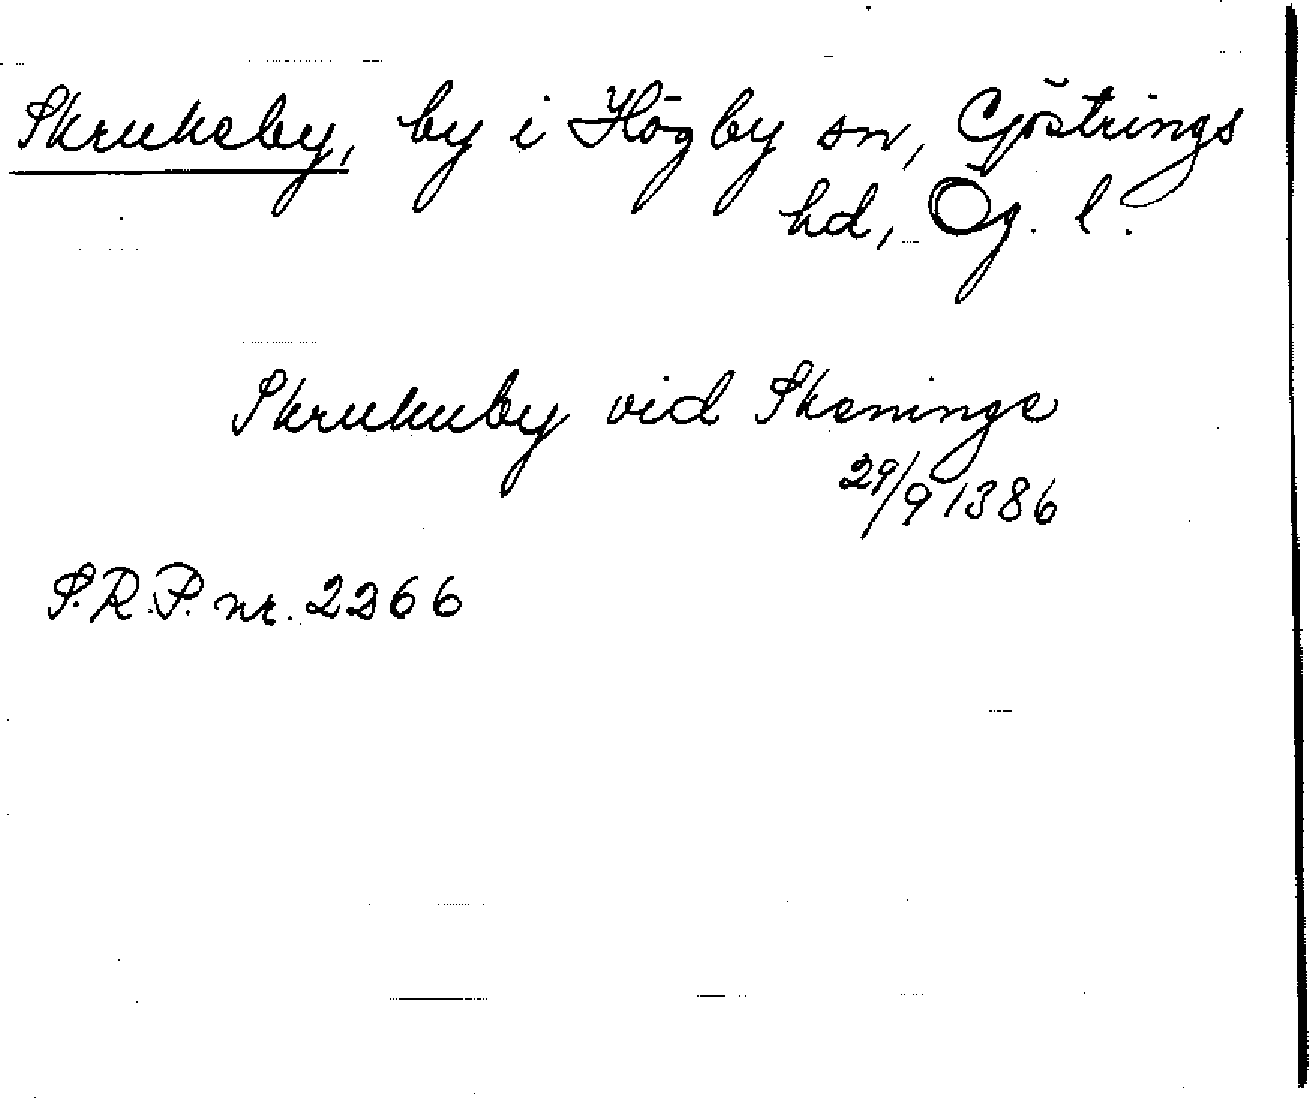 Skrukeby, by i Högby sn, Göstrings
hd, Ög. l.
Skrukuby vid Skeninge
29/9 1386
S.R.P. nr. 2266